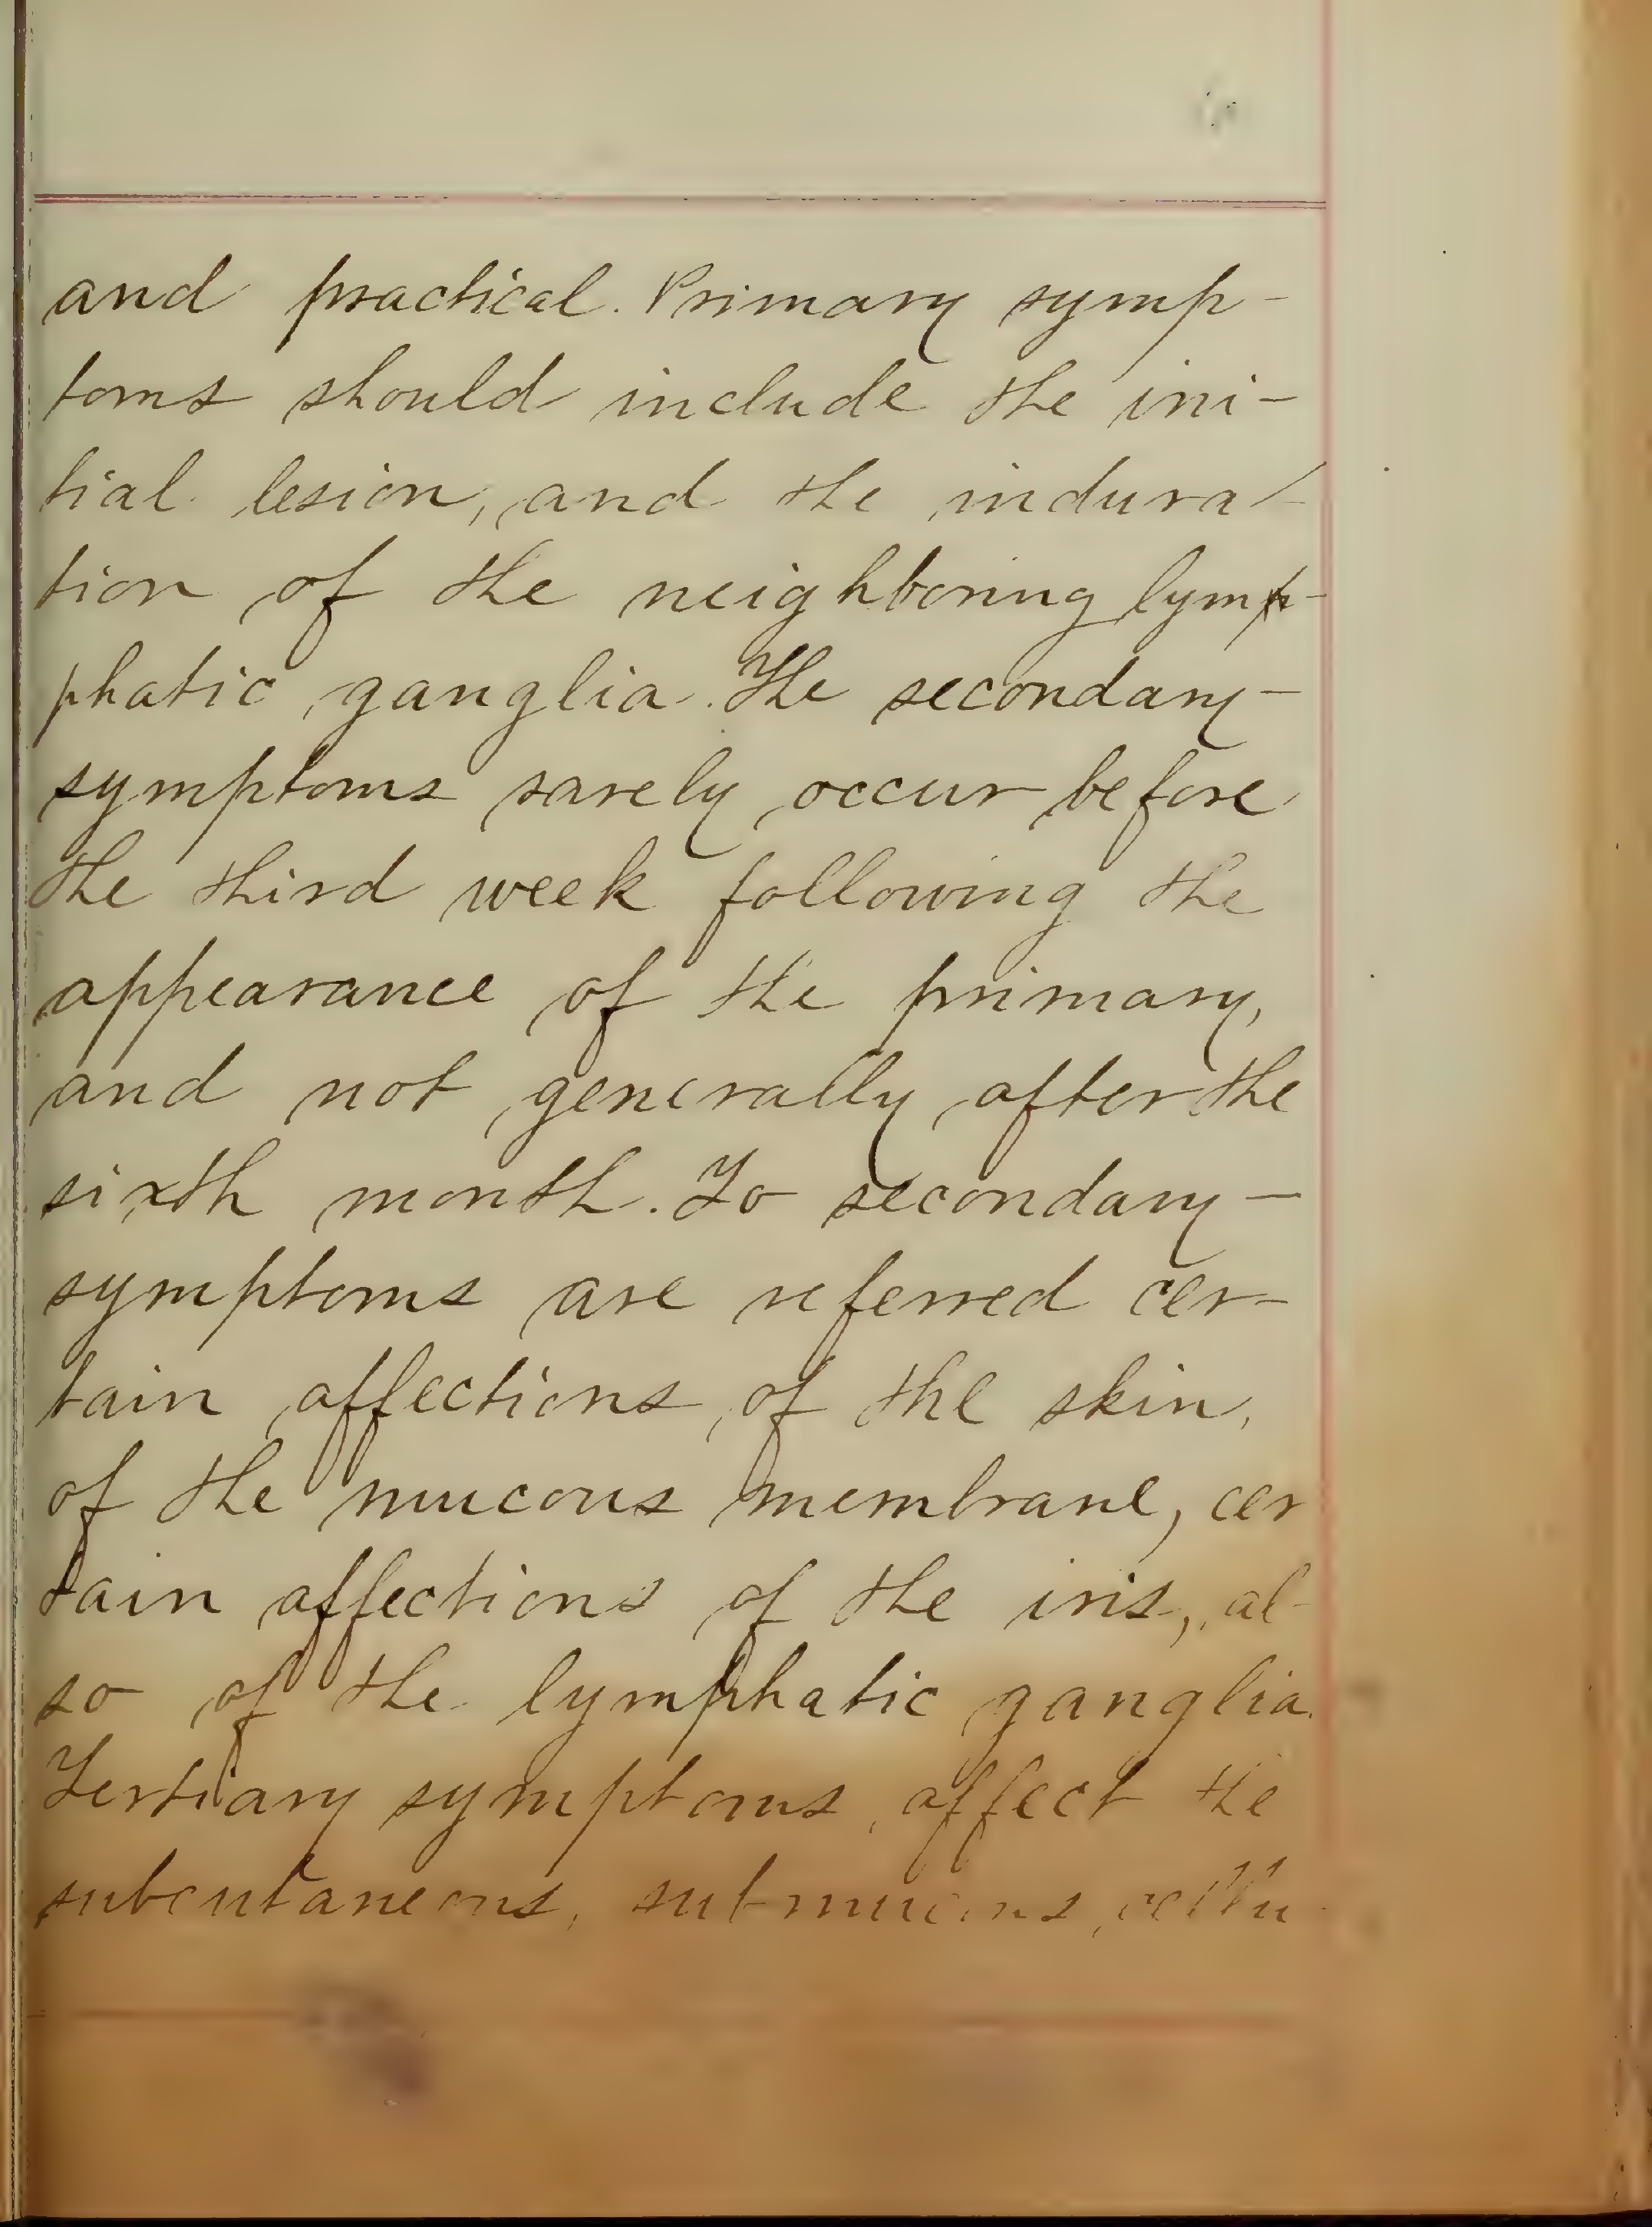 and practical. Primary symp-
toms should include the ini-
tial lesion, and the indura-
tion of the neighboring lymp-
phatic ganglia. The secondary-
symptoms rarely occur before
the third week following the
appearance of the primary,
and not generally after the
sixth month. To secondary-
symptoms are referred cer-
tain affections of the skin,
of the mucous membrane, cer
tain affections of the iris, al-
so of the lymphatic ganglia.
Tertiary symptoms affect the
subcutaneous, submucous, cellu-